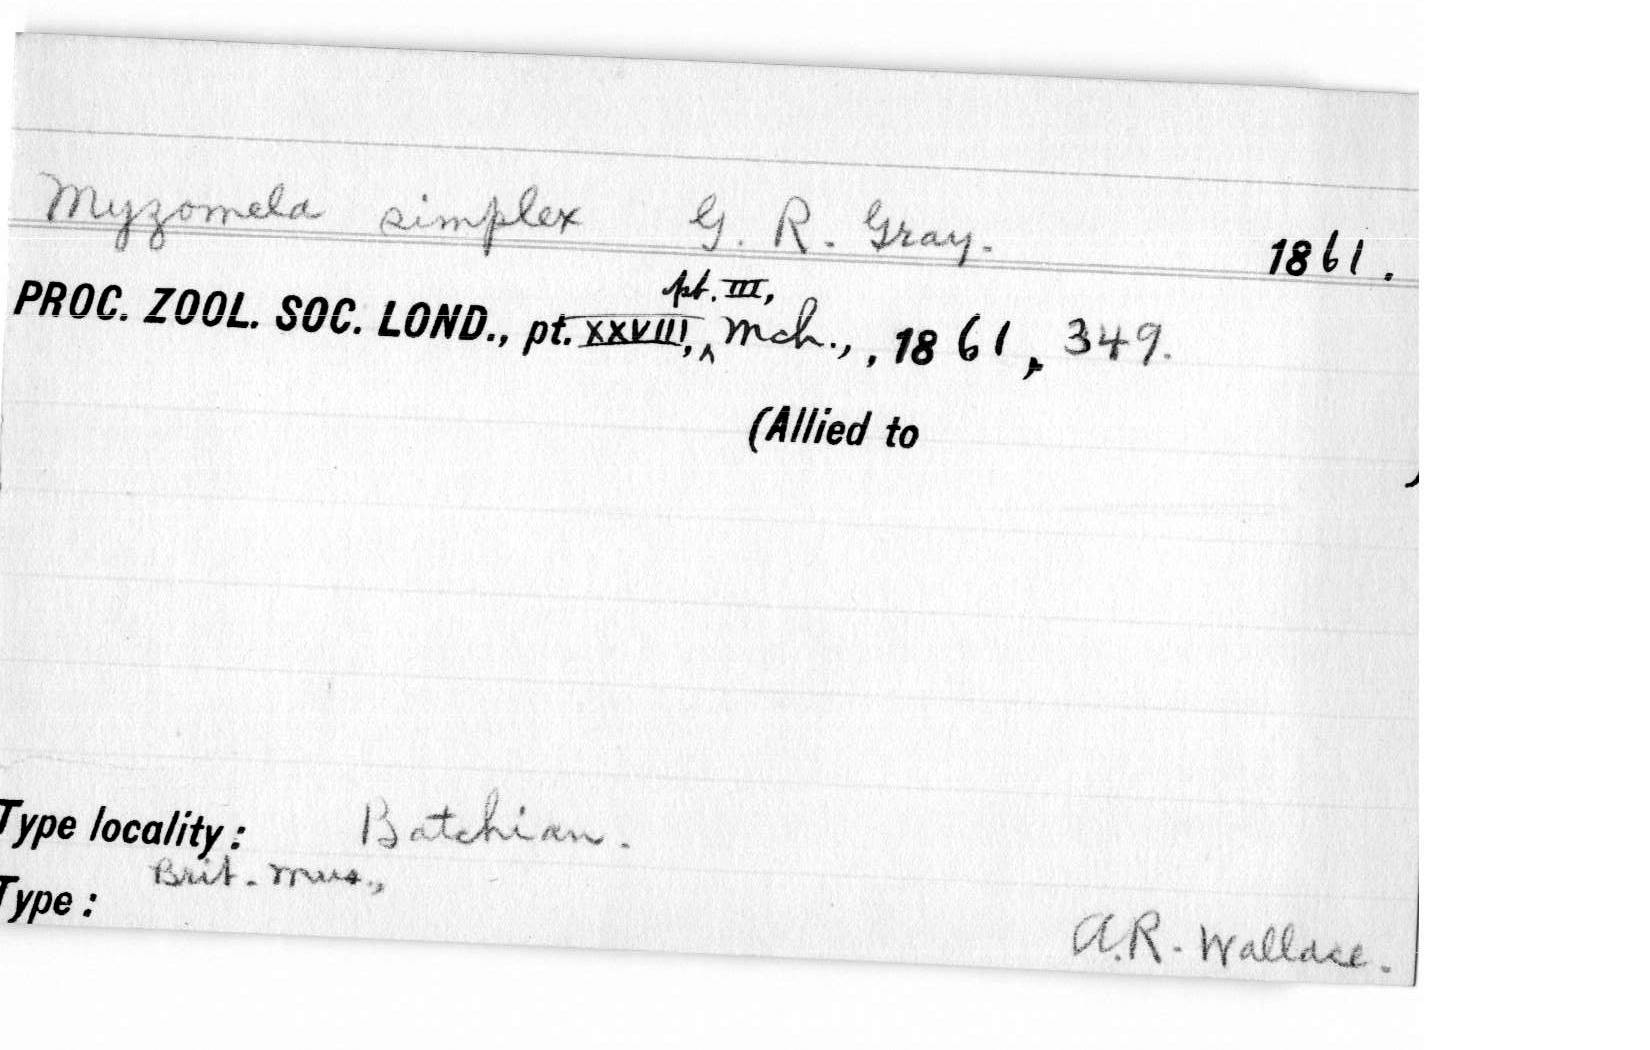 Myzomela simplex G. R. Gray. 1861.
pt. III,
PROC. ZOOL. SOC. LOND., pt. XXVIII, ‸ Mch., , 1861, 349.
(Allied to )
Type locality: Batchian.
Brit. Mus.,
Type:
A.R. Wallace.